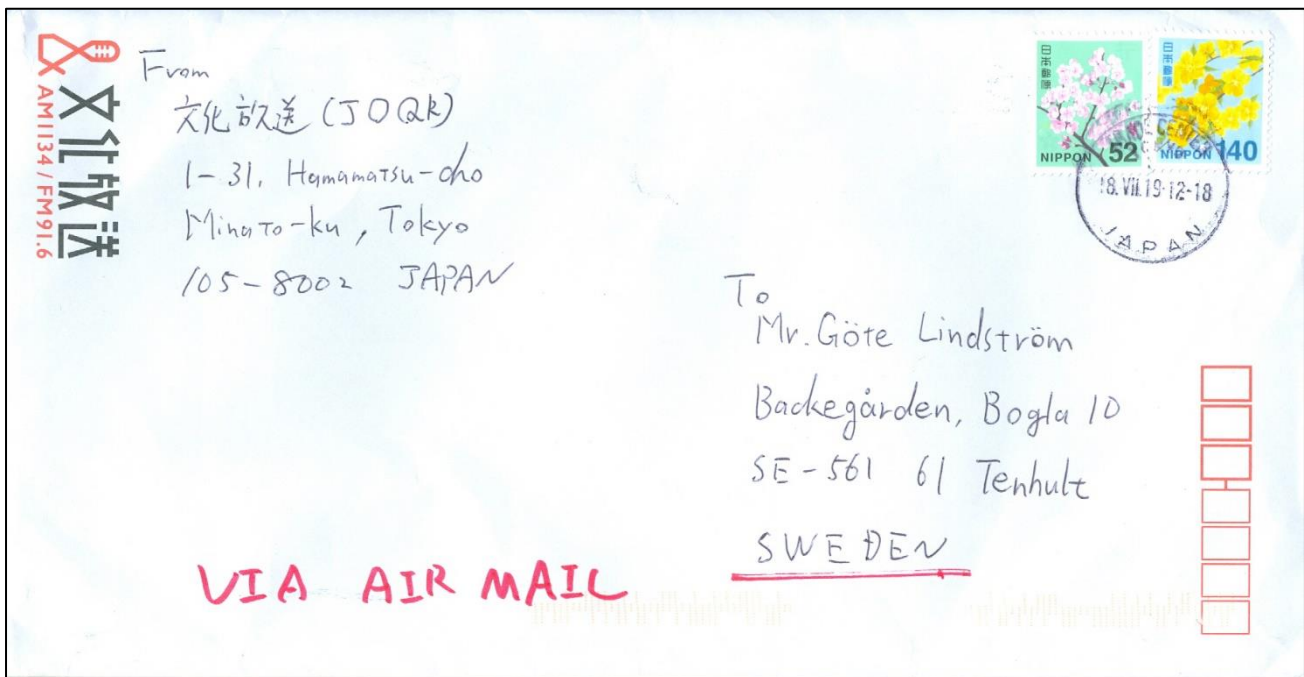 文化放送
AM1134 / FM91.6
From
文化放送 (JOQR)
1-31, Hamamatsu-cho
Minato-ku, Tokyo
105-8002 JAPAN
日本郵便
NIPPON 52
日本郵便
NIPPON 140
18.VII.19.12-18
JAPAN
To
Mr. Göte Lindström
Backegården, Bogla 10
SE-561 61 Tenhult
SWEDEN
VIA AIR MAIL